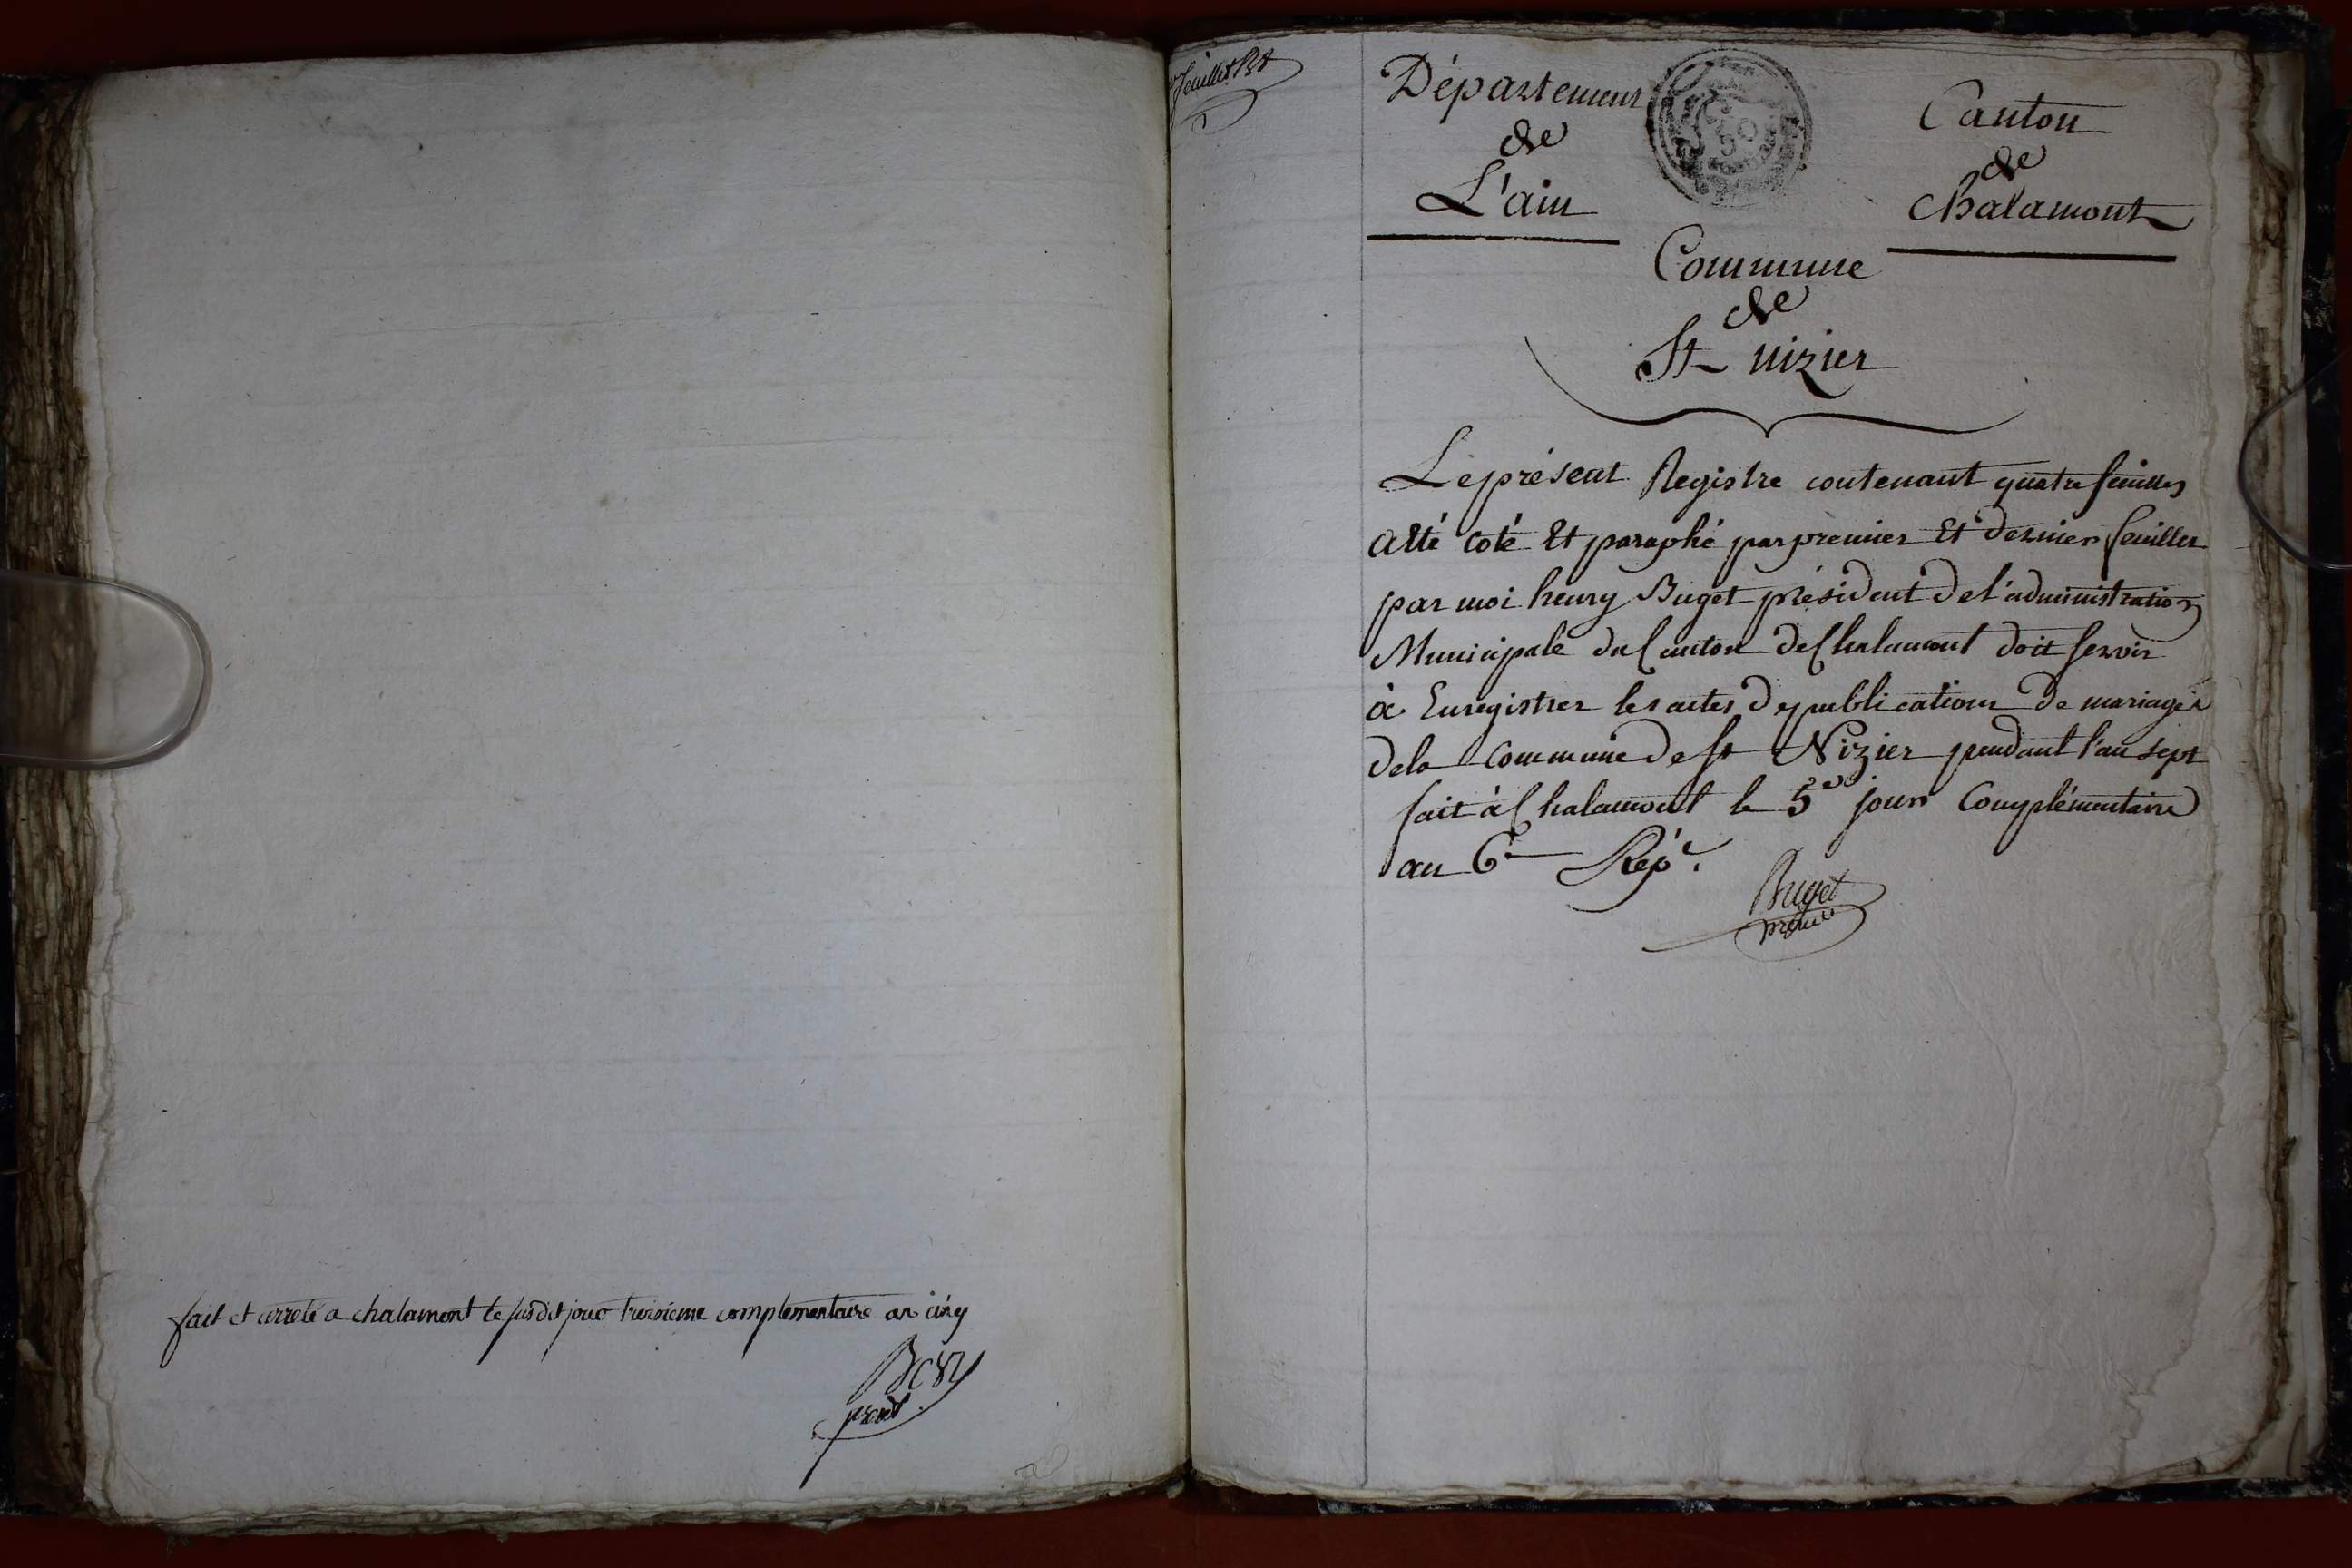 fait et arreté a chalamont le susdit jour troisieme complementaire an cinq
presdt
feuillet
Département
de
L'ain
Canton
de
Chalamont
Commune
de
St nizier
Le présent Registre contenant quatre feuilles
a été coté Et paraphé par premier Et dernier feuillet
par moi henry Buget président de l'administration
Municipale du Canton de Chalamont doit servir
à Enregistrer les actes de publications de mariages
de la Commune de St Nizier pendant l'an sept
fait à Chalamont le 5e jour Complémentaire
an 6e Rép.
Buget